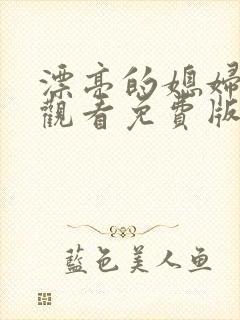 漂亮的媳婦
觀看免費版
藍色美人鱼